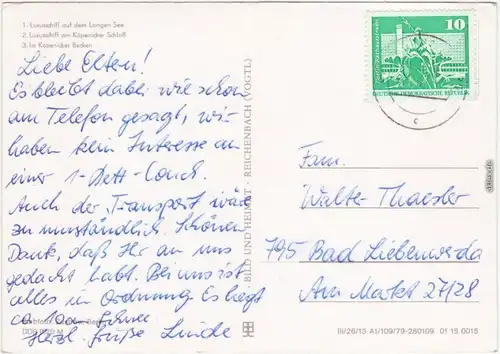 1. Luxusschiff auf dem Langen See
2. Luxusschiff am Köpenicker Schloß
3. Im Köpenicker Becken
Liebe Eltern!
Es bleibt dabei wie schon
am Telefon gesagt, wir
haben kein Interesse an
einer 1-Bett-Couch.
Auch der Transport wäre
zu umständlich. Schönen
Dank, daß Ihr an uns
gedacht habt. Bei uns ist
alles in Ordnung. Es liegt
ca 10 cm Schnee
Herzl. Grüße Linde
BILD UND HEIMAT REICHENBACH (VOGTL)
10
DEUTSCHE DEMOKRATISCHE REPUBLIK
c
Fam.
Walter Thaesler
795 Bad Liebenwerda
Am Markt 27/28
III/26/13 A1/109/79-280109 01 15 0015